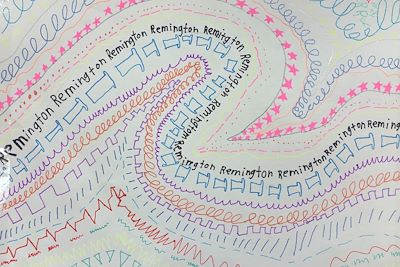 Remington Remington Remington Remington Remington Remington Remington Remington Remington Remington Remington Reming